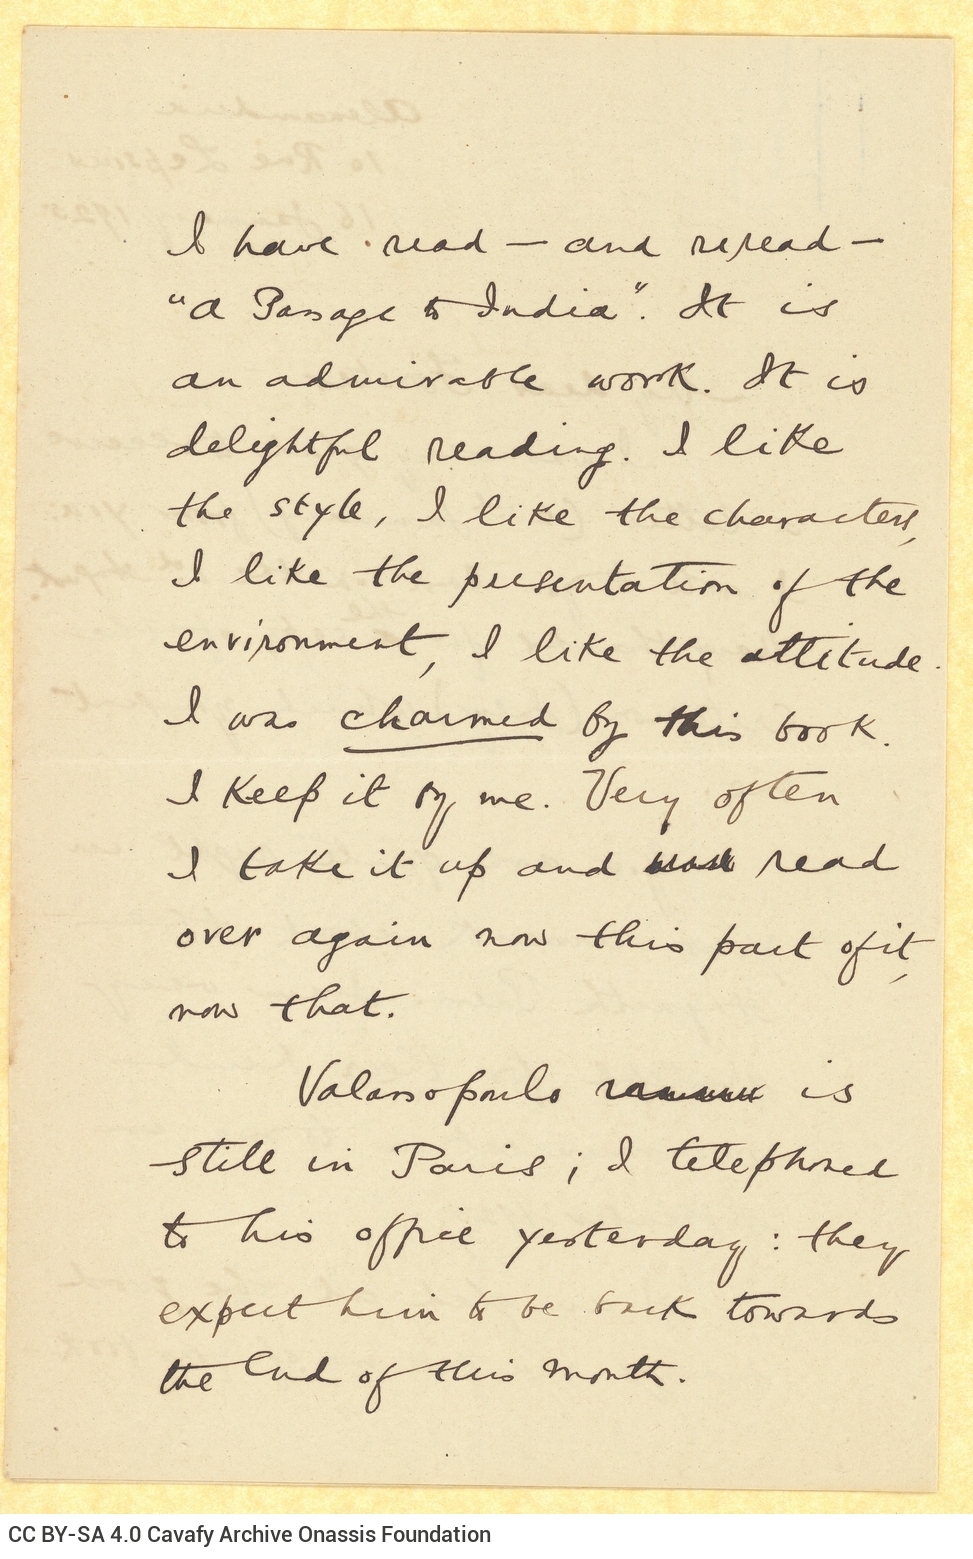 I have read — and reread —
"A Passage to India". It is
an admirable work. It is
delightful reading. I like
the style, I like the characters,
I like the presentation of the
environment, I like the attitude.
I was charmed by this book.
I keep it by me. Very often
I take it up and read
over again now this part of it,
now that.
Valassopoulo is
still in Paris; I telephoned
to his office yesterday: they
expect him to be back towards
the end of this month.
CC BY-SA 4.0 Cavafy Archive Onassis Foundation